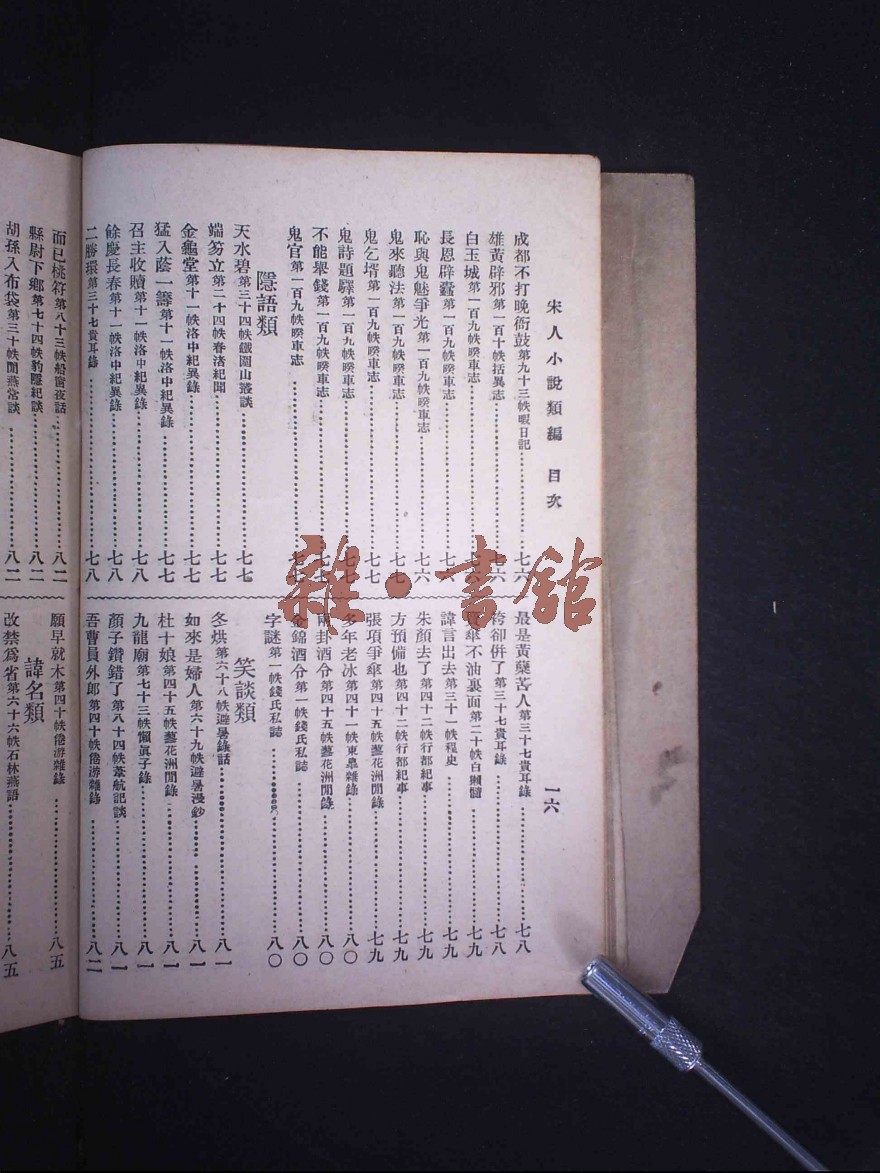 宋人小說類編　目次
一六
成都不打晚衙鼓第九十三帙暇日記……七六
雄黃辟邪第一百十帙括異志……七六
白玉城第一百九帙暌車志……七六
長恩辟蠹第一百九帙暌車志……七六
恥與鬼魅爭光第一百九帙暌車志……七六
鬼來聽法第一百九帙暌車志……七七
鬼乞壻第一百九帙暌車志……七七
鬼詩題驛第一百九帙暌車志……七七
不能舉錢第一百九帙暌車志……七七
鬼官第一百九帙暌車志……七七
隱語類
天水碧第三十四帙鐵圍山叢談……七七
端笏立第二十四帙春渚紀聞……七七
金龜堂第十一帙洛中紀異錄……七七
猛入蔭一籌第十一帙洛中紀異錄……七七
召主收贖第十一帙洛中紀異錄……七八
餘慶長春第十一帙洛中紀異錄……七八
二勝環第三十七貴耳錄……七八
最是黃蘗苦人第三十七貴耳錄……七八
袴卻併了第三十七貴耳錄……七八
傘不油裏面第二十帙白獺髓……七九
諱言出去第三十一帙桯史……七九
朱顏去了第四十二帙行都紀事……七九
方預備也第四十二帙行都紀事……七九
張項爭傘第四十五帙藝花洲閒錄……七九
多年老冰第四十一帙東臯雜錄……八〇
兩卦酒令第四十五帙藝花洲閒錄……八〇
金錦酒令第一帙錢氏私誌……八〇
字謎第一帙錢氏私誌……八〇
笑談類
冬烘第六十八帙避暑錄話……八一
如來是婦人第六十九帙避暑漫鈔……八一
杜十娘第四十五帙藝花洲閒錄……八一
九龍廟第七十三帙懶眞子錄……八一
顏子鑽錯了第八十四帙葦航記談……八一
吾曹員外郎第四十帙倦游雜錄……八二
而已桃符第八十三帙船窗夜話……八二
縣尉下鄉第七十四帙豹隱紀談……八二
胡孫入布袋第三十帙聞燕常談……八二
願早就木第四十帙倦游雜錄……八五
諱名類
改禁爲省第六十六帙石林燕語……八五
雜·書館